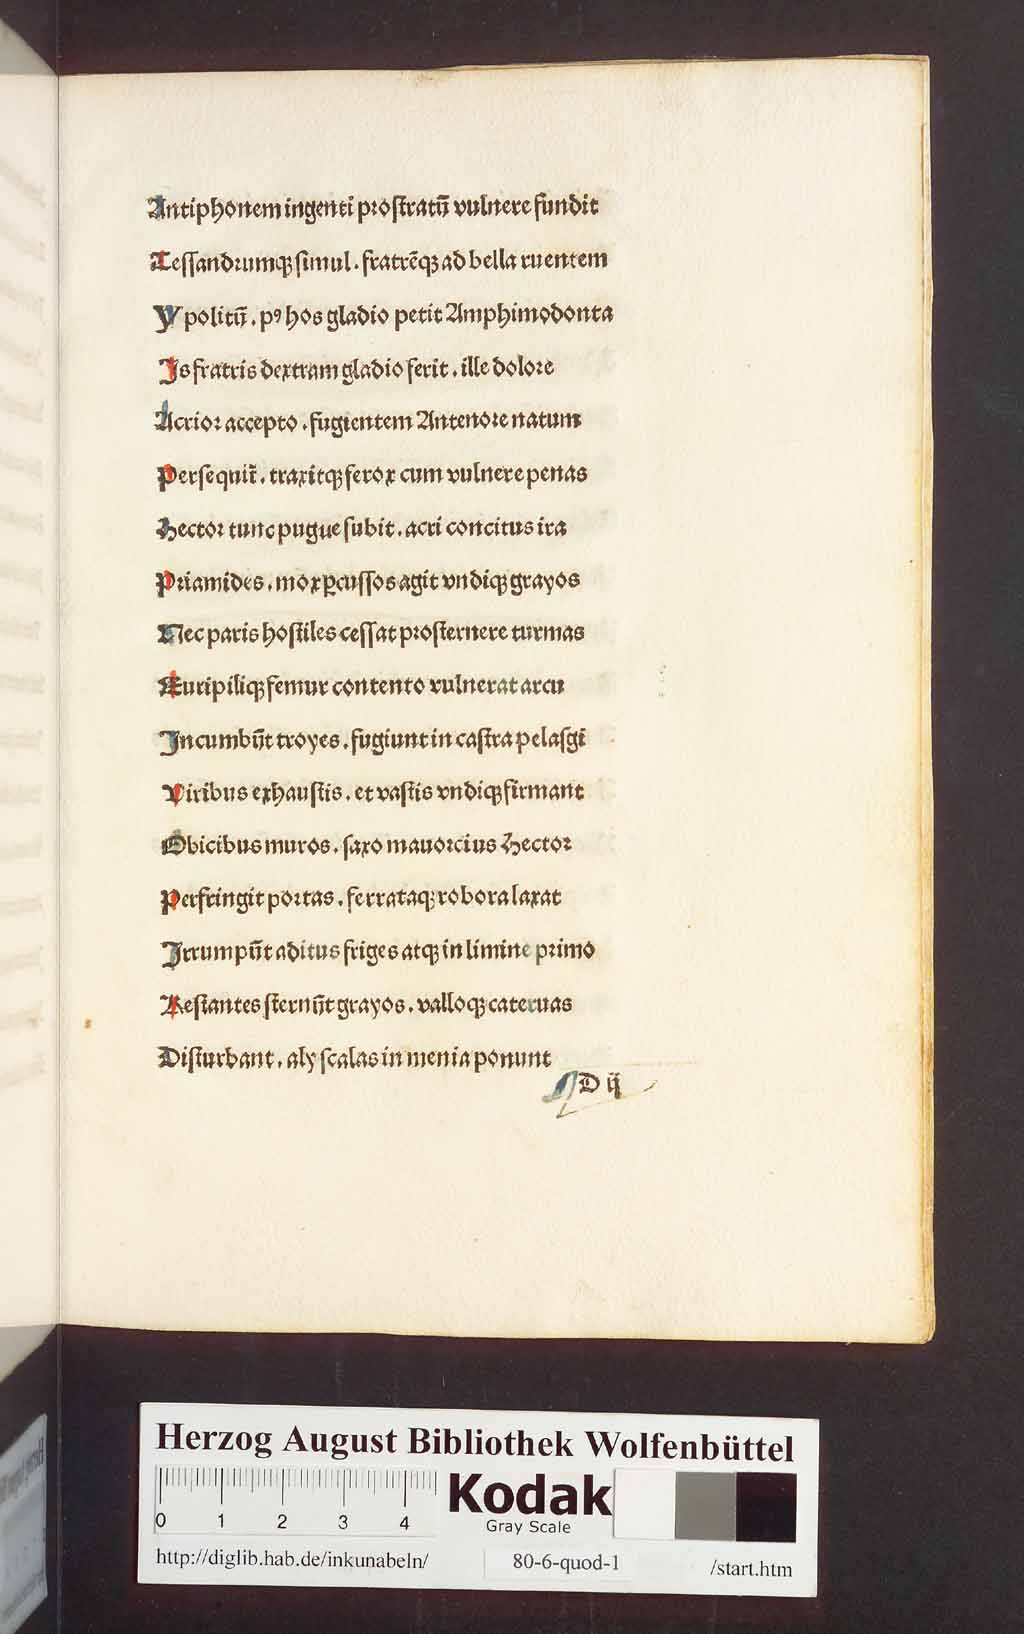 Antiphonem ingenti proſtratū vulnere fundit
Teſſandrumqꝫ ſimul. fratrēqꝫ ad bella ruentem
Ypolitū. pꝰ hos gladio petit Amphimodonta
Is fratris dextram gladio ferit. ille dolore
Acrior accepto. fugientem Antenore natum
Perſequit̄. traxitqꝫ ferox cum vulnere penas
Hector tunc pugue ſubit. acri concitus ira
Priamides. mox ꝑcuſſos agit vndiqꝫ grayos
Nec paris hoſtiles ceſſat proſternere turmas
Euripiliqꝫ femur contento vulnerat arcu
Incumbūt troyes. fugiunt in caſtra pelaſgi
Viribus exhauſtis. et vaſtis vndiqꝫ firmant
Obicibus muros. ſaxo mauorcius Hector
Perfringit portas. ferrataqꝫ robora laxat
Irrumpūt aditus friges atqꝫ in limine primo
Reſtantes ſternūt grayos. valloqꝫ cateruas
Diſturbant. alij ſcalas in menia ponunt
D ij
Herzog August Bibliothek Wolfenbüttel
0 1 2 3 4
Kodak
Gray Scale
http://diglib.hab.de/inkunabeln/ 80-6-quod-1 /start.htm